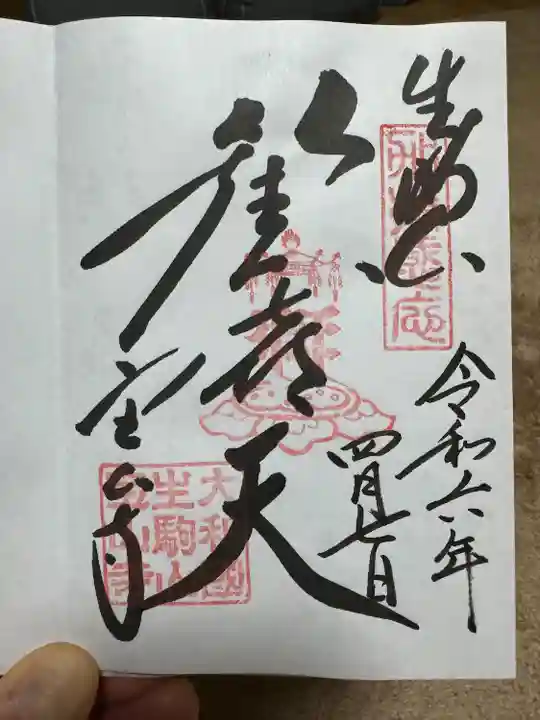 生駒山
令和六年
四月七日
歡喜天
宝山寺
大和國
生駒山
寶山寺